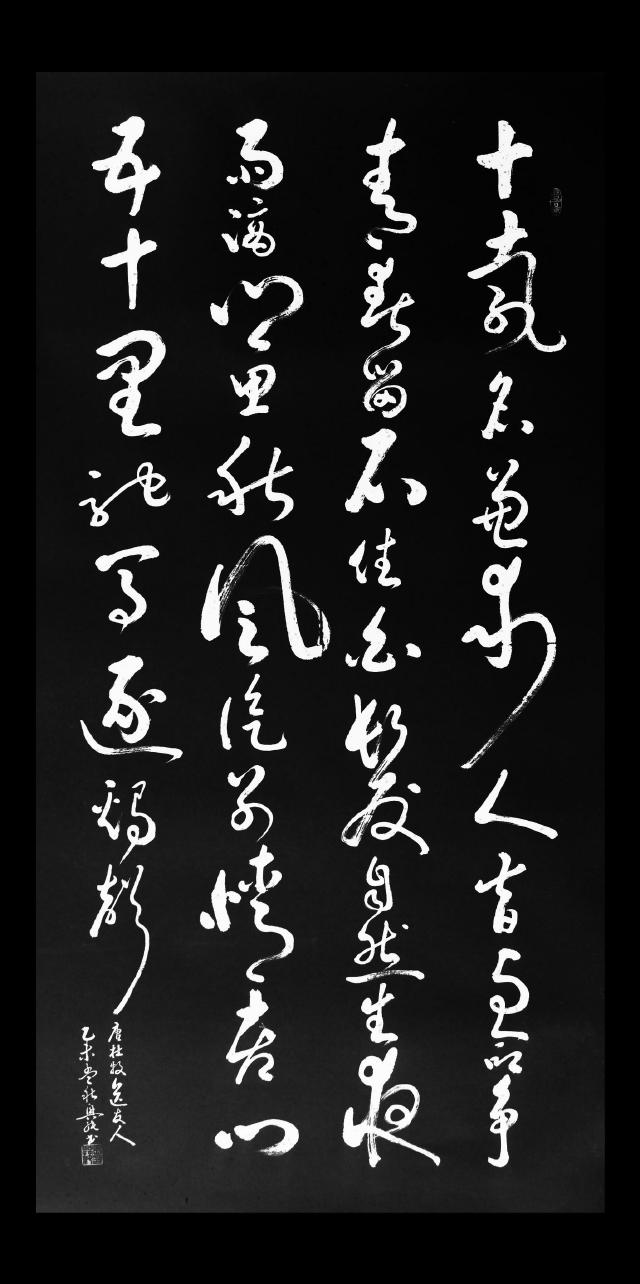 十載名兼利人皆與命爭
青春留不住白髮自然生夜
雨滴鄉思秋風從別情都門
五十里馳馬逐鷄聲
唐杜牧送友人
乙未孟秋書